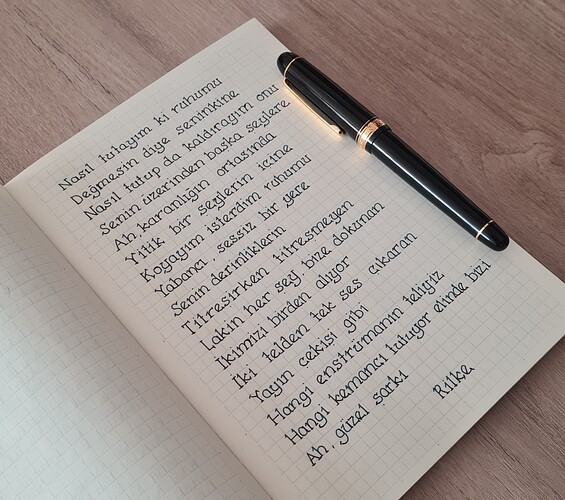 Nasıl tutayım ki ruhumu
Değmesin diye seninkine
Nasıl tutup da kaldırayım onu
Senin üzerinden başka şeylere
Ah, karanlığın ortasında
Yitik bir şeylerin içine
Koyayım isterdim ruhumu
Yabancı, sessiz bir yere
Senin derinliklerin
Titreşirken titreşmeyen
Lakin her şey, bize dokunan
İkimizi birden alıyor
İki telden tek ses çıkaran
Yayın çekişi gibi
Hangi enstrümanın teliyiz
Hangi kemancı tutuyor elinde bizi
Ah, güzel şarkı
Rilke